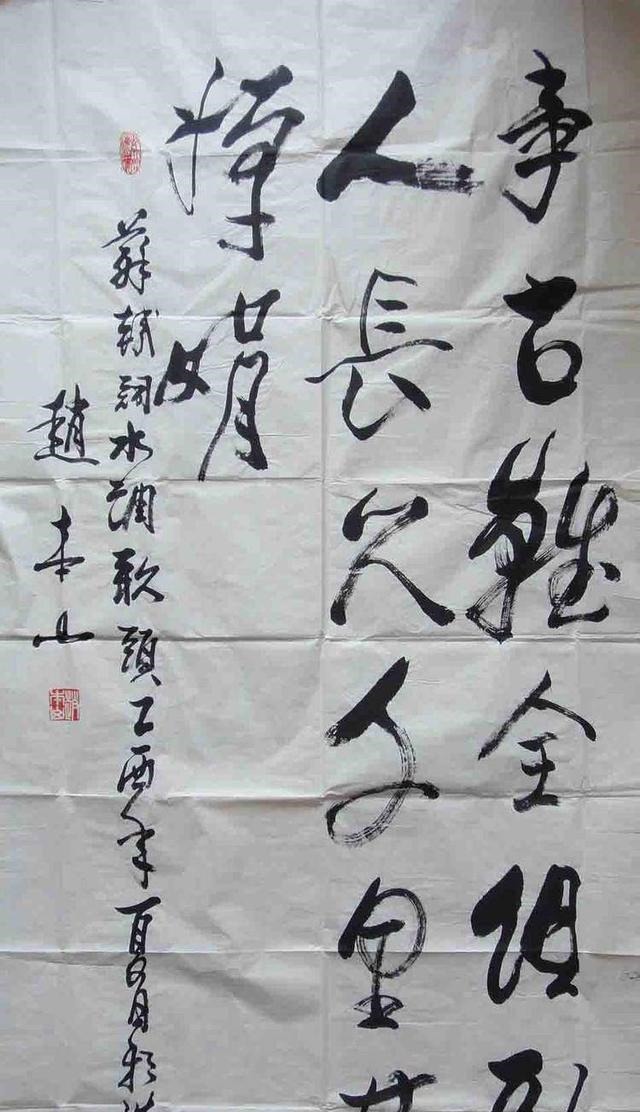 事古難全但願
人長久千里共
嬋娟
蘇軾詞水調歌頭乙酉年夏月於
趙本山